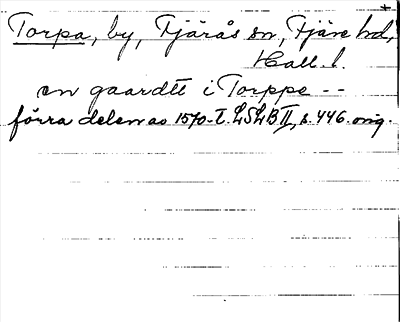 Torpa, by, Fjärås sn, Fjäre hd,
Hall. l.
en gaardtt i Torppe --
förra delen av 1570-t. LSLB II, s. 446. orig.